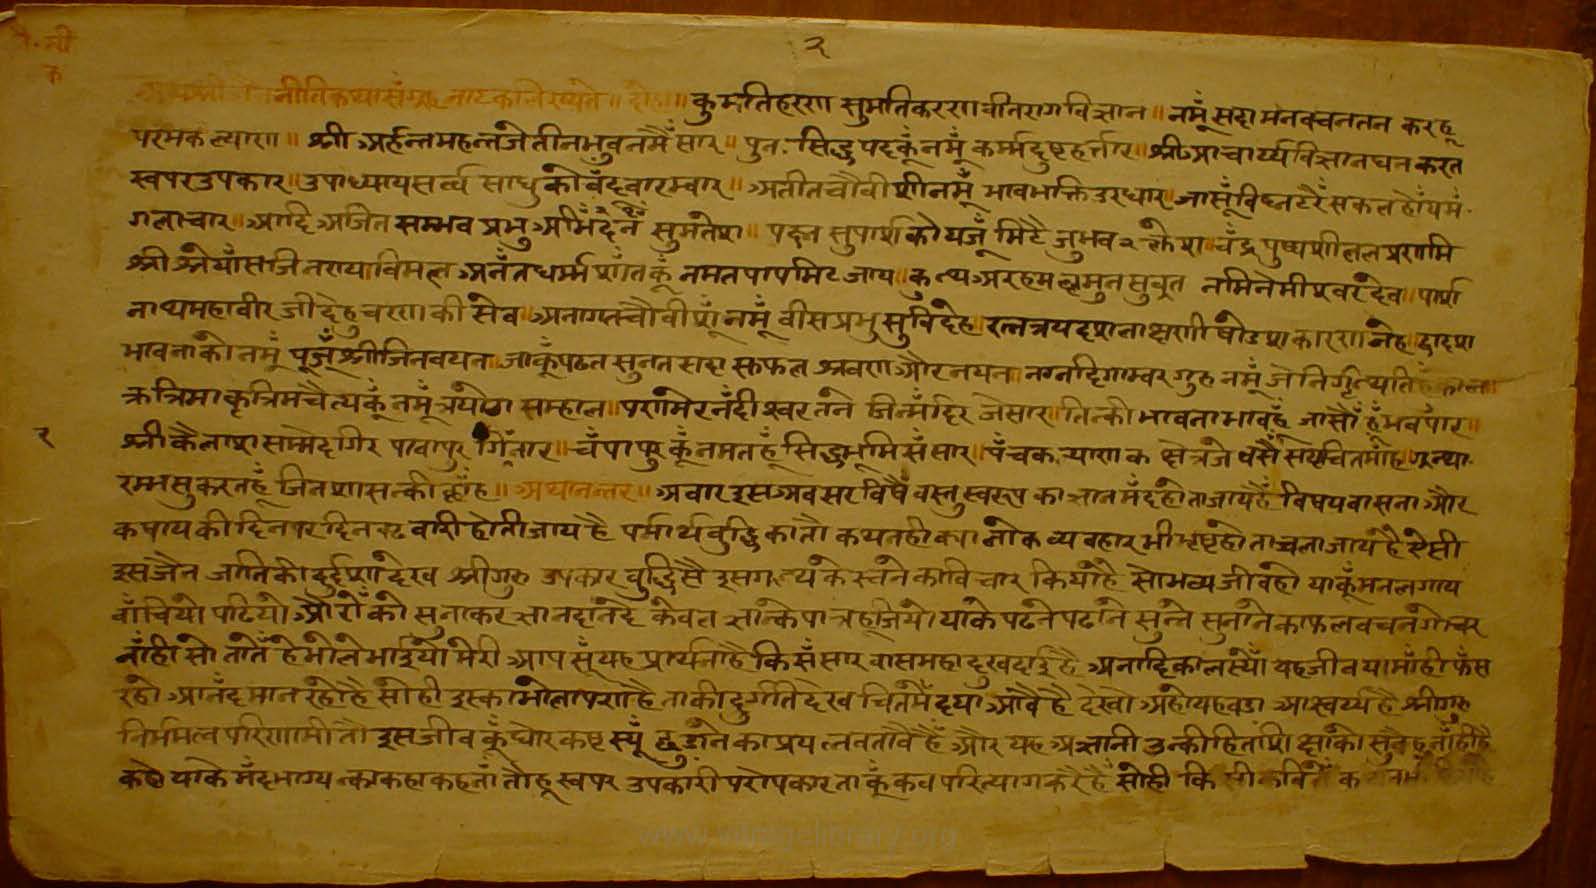 २
जै. नी
क
नीतिकथासंग्रह नाटक लिख्यते ॥ दोहा ॥ कुमतिहरण सुमतिकरण वीतराग विज्ञान ॥ नमूं सदा मनवचनतन करहू
परमकल्याण ॥ श्री अर्हन्तमहन्तजे तीनभुवनमैं सार ॥ पुनः सिद्धपदकूं नमूं कर्म्मदुष्टहर्त्तार ॥ श्रीआचार्य्यविज्ञानघन करत
स्वपरउपकार ॥ उपाध्यायसर्व्व साधुको वंदूं वारम्वार ॥ अतीतचौवीशीनमूं भावभक्तिउरधार ॥ जासूं विघ्नटरैं सकल होंय मं
गलाचार ॥ आदि अजित सम्भव प्रभु सुमतेश ॥ पद्म सुपार्श्वको यजूं मिटै जु भव २ क्लेश ॥ चंद्र पुष्प शीतल प्रणमि
श्री श्रेयांसजिनराया विमल अनंत धर्म्म शांतिकूं नमत पाप मिट जाय ॥ कुन्थ अरहमल्ल मुनसुव्रत नमिनेमीश्वर देव ॥ पार्श्व
नाथमहावीरजी देहु चरणकी सेव ॥ अनागतचौवीशूं नमूं वीसप्रभु सुविदेह ॥ रत्नत्रयदशलाक्षणी षोडशकारण नेह ॥ द्वादश
भावनाको नमूं पूजूं श्रीजिनवयन ॥ जाकूं पढत सुनत सदा सफल श्रवण और नयन ॥ नग्नदिगाम्वर गुरु नमूं जे निर्गृन्थ
क्रत्रिमाकृत्रिमचैत्यकूं नमूं त्रयोग सम्हाल ॥ प्रणमि नंदीश्वर तने जिनमंदिर जे सार ॥ तिनकी भावना भावहूं जासों हूं भवपार ॥
२
श्री कैलाश सम्मेदगिर पावापुर गिर्नार ॥ चंपापुरकूं नमत हूं सिद्धभूमि संसार ॥ पंचकल्याणक क्षेत्र जे वसैं चितमांह ॥ ग्रन्था
रम्भ सु करत हूं जिनशासनकी छांह ॥ अथानन्तर ॥ अवार इस अवसर विषैं वस्तुस्वरूप का ज्ञान मंद होता जाय है विषयवासना और
कषाय की दिन पर दिन वढवारी होती जाय है पर्मार्थवुद्धि का तौ कथन ही क्या लोकव्यवहार भी भृष्ट होता चला जाय है ऐसी
इस जैन जाति की दुर्द्दशा देख श्रीगुरु उपकार वुद्धि सै इस ग्रन्थ के रचने का विचार किया है सो भव्यजीव हो याकूं मन लगाय
वांचियो पढियो औरों को सुनाकर ज्ञानदान दे केवलज्ञानके पात्र हूजियो याके पढने पढाने सुन्ने सुनाने का फल वचनगोचर
नांही सो तातैं हे भोले भाईयो मेरी आप सूं यह प्रार्थना है कि संसार वास महादुखदाई है अनादिकालस्यों यह जीव यामांही फंस
रहो आनंद मान रहो है सो ही इस्का भोलापणा है ताकी दुर्गति देख चितमैं दया आवै है देखो अहो यह वडा आश्चर्य्य है श्रीगुरु
निर्ममत्व परिणामी तौ इस जीवकूं घोरकष्टस्यूं छुडाने का प्रयत्न वतावै हैं और यह अज्ञानी उनकी हितशिक्षाको सुनै नांही है
कहो याके मंदभाग्य का कहा कहना तौहू स्वपर उपकारी परोपकारताकूं कव परित्याग करैं हैं सोही